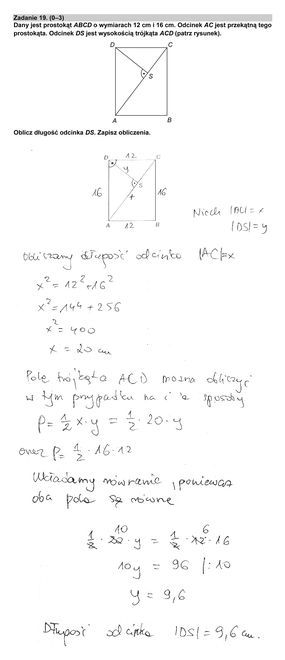 Zadanie 19. (0–3)
Dany jest prostokąt ABCD o wymiarach 12 cm i 16 cm. Odcinek AC jest przekątną tego
prostokąta. Odcinek DS jest wysokością trójkąta ACD (patrz rysunek).
D C
S
A B
Oblicz długość odcinka DS. Zapisz obliczenia.
D 12 C
y
16 S 16
x
A 12 B
Niech |AC| = x
|DS| = y
Obliczamy długość odcinka |AC|=x
x² = 12² + 16²
x² = 144 + 256
x² = 400
x = 20 cm
Pole trójkąta ACD można obliczyć
w tym przypadku na 2 sposoby
P = 1/2 x · y = 1/2 · 20 · y
oraz P = 1/2 · 16 · 12
Układamy równanie, ponieważ
oba pola są równe
10 6
1/2 · 20 · y = 1/2 · 12 · 16
10y = 96 /:10
y = 9,6
Długość odcinka |DS| = 9,6 cm.